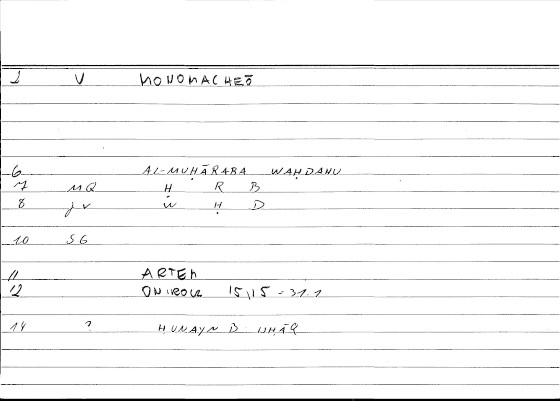 1 V MONOMACHEŌ
6 AL-MUḤĀRABA WAḤDAHU
7 MQ Ḥ R B
8 jv W Ḥ D
10 SG
11 ARTEM
12 ONIROCR 15,15 = 31.1
14 ? ḤUNAYN B. ISḤĀQ